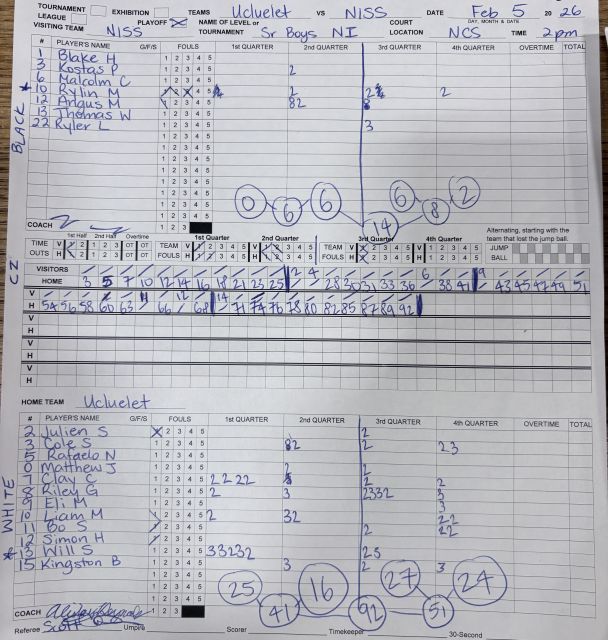 TOURNAMENT EXHIBITION TEAMS Ucluelet VS NISS DATE Feb 5 20 26
LEAGUE PLAYOFF NAME OF LEVEL or COURT DAY, MONTH & DATE
VISITING TEAM NISS TOURNAMENT Sr Boys NI LOCATION NCS TIME 2pm
# PLAYER'S NAME G/F/S FOULS 1st QUARTER 2nd QUARTER 3rd QUARTER 4th QUARTER OVERTIME TOTAL
1 Blake H 1 2 3 4 5
3 Kostas P 1 2 3 4 5 2
6 Malcolm C 1 2 3 4 5
10 Rylin M 4 5 2 2
12 Angus M 2 3 4 5 82
13 Thomas W 1 2 3 4 5
22 Ryler L 1 2 3 4 5 3
BLACK
0 6 6 14 8 6 2
COACH
1st Half 2nd Half Overtime 1st Quarter 2nd Quarter 3rd Quarter 4th Quarter Alternating, starting with the
team that lost the jump ball.
TIME V TEAM V TEAM V JUMP
OUTS H FOULS H FOULS H BALL
CZ
VISITORS 2 4 6 9
HOME 3 5 7 10 12 14 16 18 21 23 25 28 30 31 33 36 38 41 43 45 47 49 51
V 11 12 14
H 54 56 58 60 63 66 68 71 74 76 78 80 82 85 87 89 92
V
H
V
H
HOME TEAM Ucluelet
# PLAYER'S NAME G/F/S FOULS 1st QUARTER 2nd QUARTER 3rd QUARTER 4th QUARTER OVERTIME TOTAL
2 Julien S 2 3 4 5 2
3 Cole S 1 2 3 4 5 82 2 23
5 Rafaelo N 1 2 3 4 5
0 Matthew J 1 2 3 4 5 2 2
7 Clay C 1 2 3 4 5 2 2 22 2 2
8 Riley G 1 2 3 4 5 2 3 2332 3
9 Eli M 1 2 3 4 5 3
10 Liam M 2 3 4 5 2 32 22
11 Bo S 2 3 4 5 2 22
12 Simon H 2 3 4 5
13 Will S 1 2 3 4 5 33232 25
15 Kingston B 1 2 3 4 5 3 2 3
WHITE
25 41 16 92 27 51 24
COACH 1 2 3
Referee Scott Umpire Scorer Timekeeper 30-Second